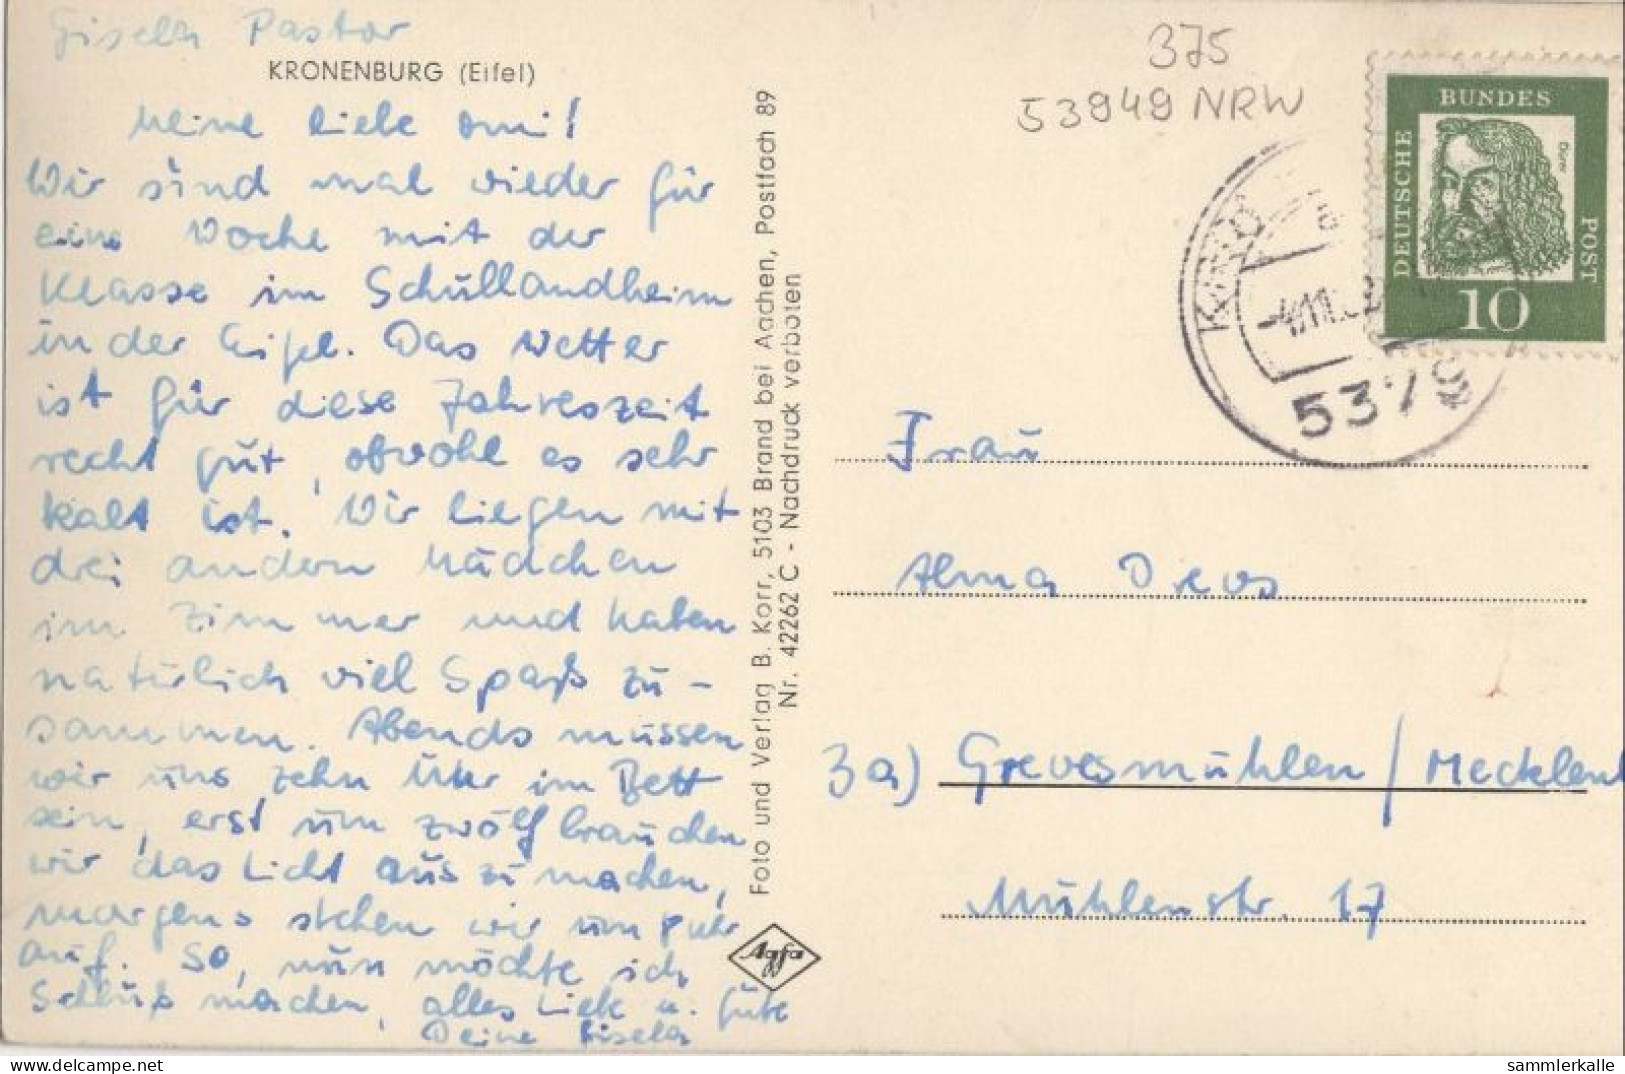 Gisela Pastor
KRONENBURG (Eifel)
Meine liebe Omi!
Wir sind mal wieder für
eine Woche mit der
Klasse im Schullandheim
in der Eifel. Das Wetter
ist für diese Jahreszeit
recht gut, obwohl es sehr
kalt ist. Wir liegen mit
drei andern Mädchen
im Zimmer und haben
natürlich viel Spaß zu-
sammen. Abends müssen
wir uns zehn Uhr im Bett
sein, erst um zwölf brauchen
wir das Licht auszumachen,
morgens stehen wir um 8 Uhr
auf. So, nun möchte ich
Schluß machen, alles Liebe u. Gute
Deine Gisela
Foto und Verlag B. Korr, 5103 Brand bei Aachen, Postfach 89
Nr. 42262 C - Nachdruck verboten
Agfa
375
53949 NRW
DEUTSCHE
BUNDES
POST
Dürer
10
5379
Frau
Alma Drevs
3a) Grevesmühlen / Mecklenb
Mühlenstr. 17
delcampe.net
sammlerkalle